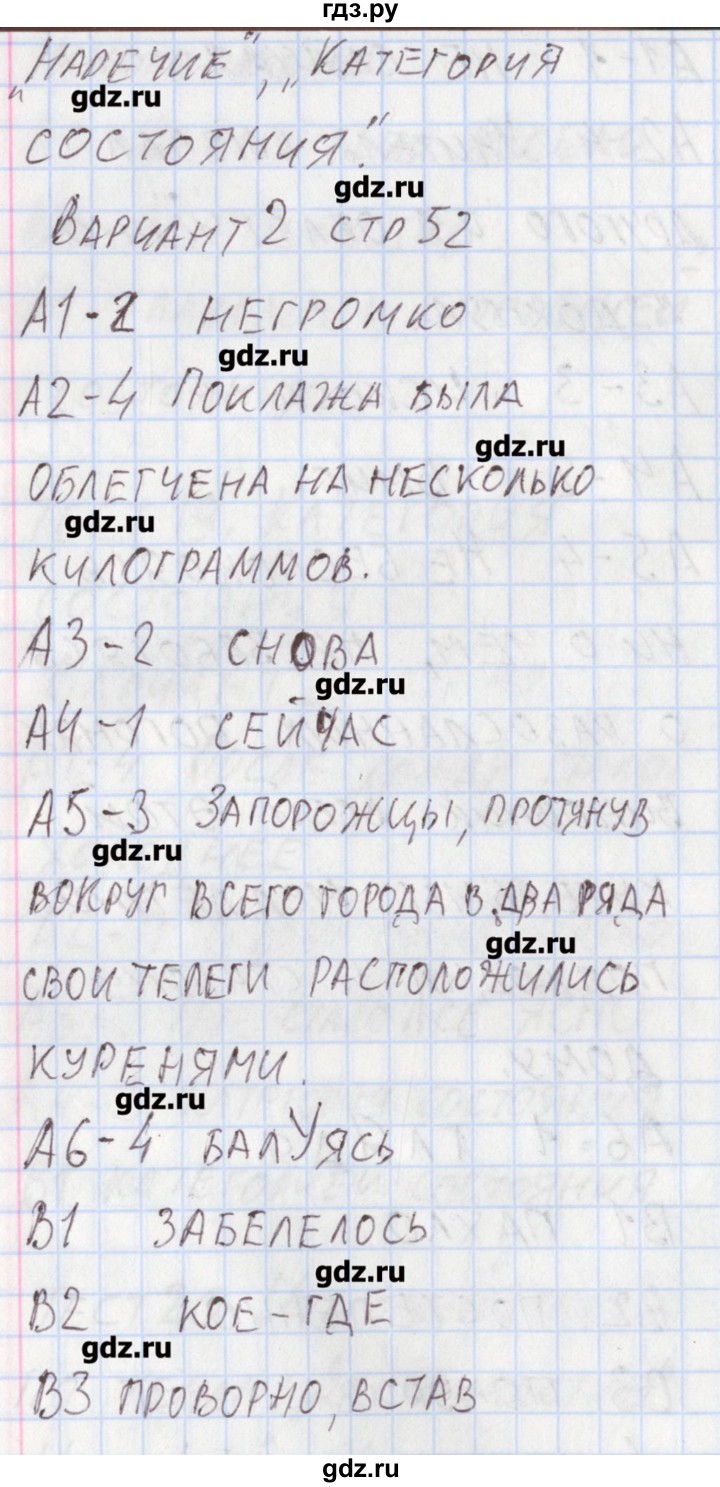 гдз.ру
„Наречие", „Категория
gdz.ru
состояния."
gdz.ru
Вариант 2 стр 52
А1-1 негромко
gdz.ru
А2-4 Поклажа была
gdz.ru
облегчена на несколько
gdz.ru
килограммов.
А3-2 снова
gdz.ru
А4-1 сейчас
А5-3 Запорожцы, протянув
gdz.ru
вокруг всего города в два ряда
gdz.ru
свои телеги расположились
куренями.
gdz.ru
А6-4 балУясь
В1 забелелось
gdz.ru
В2 кое-где
gdz.ru
В3 проворно, встав
gdz.ru